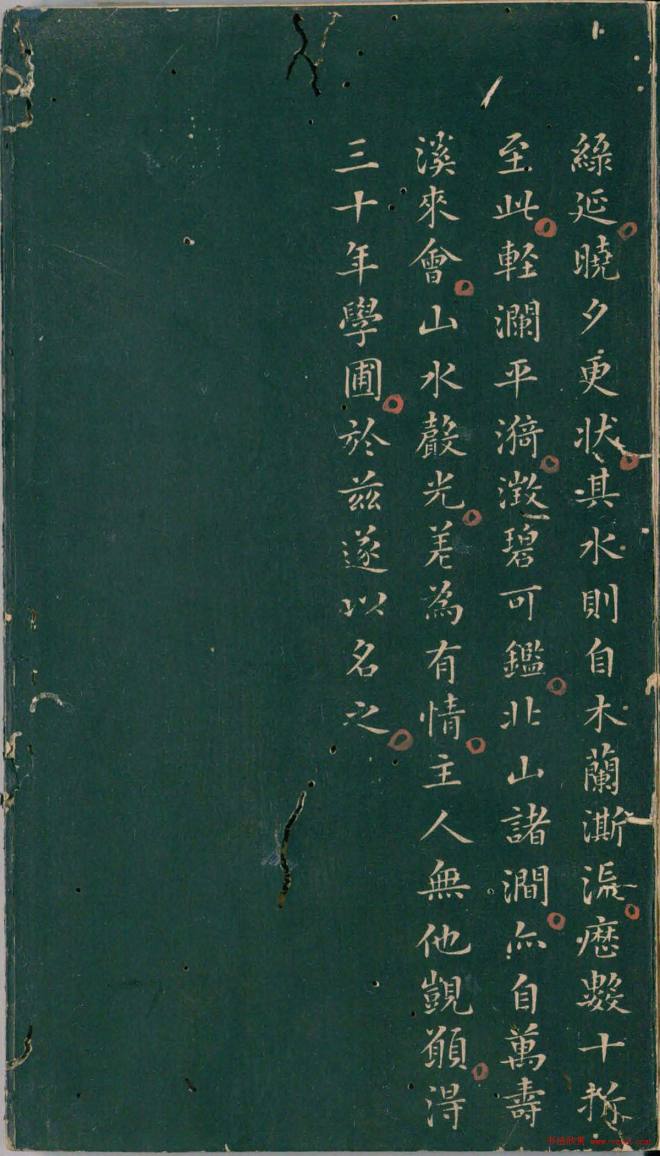 緜延曉夕更狀其水則自木蘭澌漲歷數十折
至此輕瀾平漪澂碧可鑑北山諸澗亦自萬壽
溪來會山水聲光差為有情主人無他覬願得
三十年學圃於茲遂以名之
书法欣赏